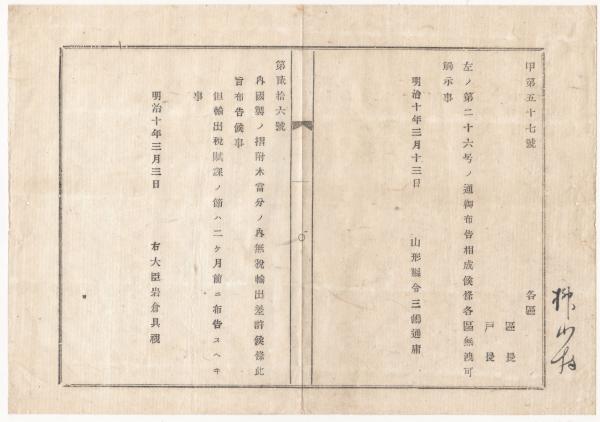 甲第五十七號
各區
區長
戸長
左ノ第二十六号ノ通御布告相成候條各區無洩可
觸示事
明治十年三月十三日
山形縣令三島通庸
第貳拾六號
內國製ノ摺附木當分ノ內無税輸出差許候條此
旨布告候事
但輸出税賦課ノ節ハ二ケ月前ニ布告スヘキ
事
明治十年三月三日
右大臣岩倉具視